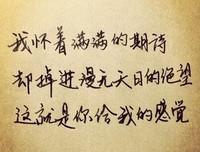 我怀着满满的期诗
却掉进漫无天日的绝望
这就是你、给我的感觉